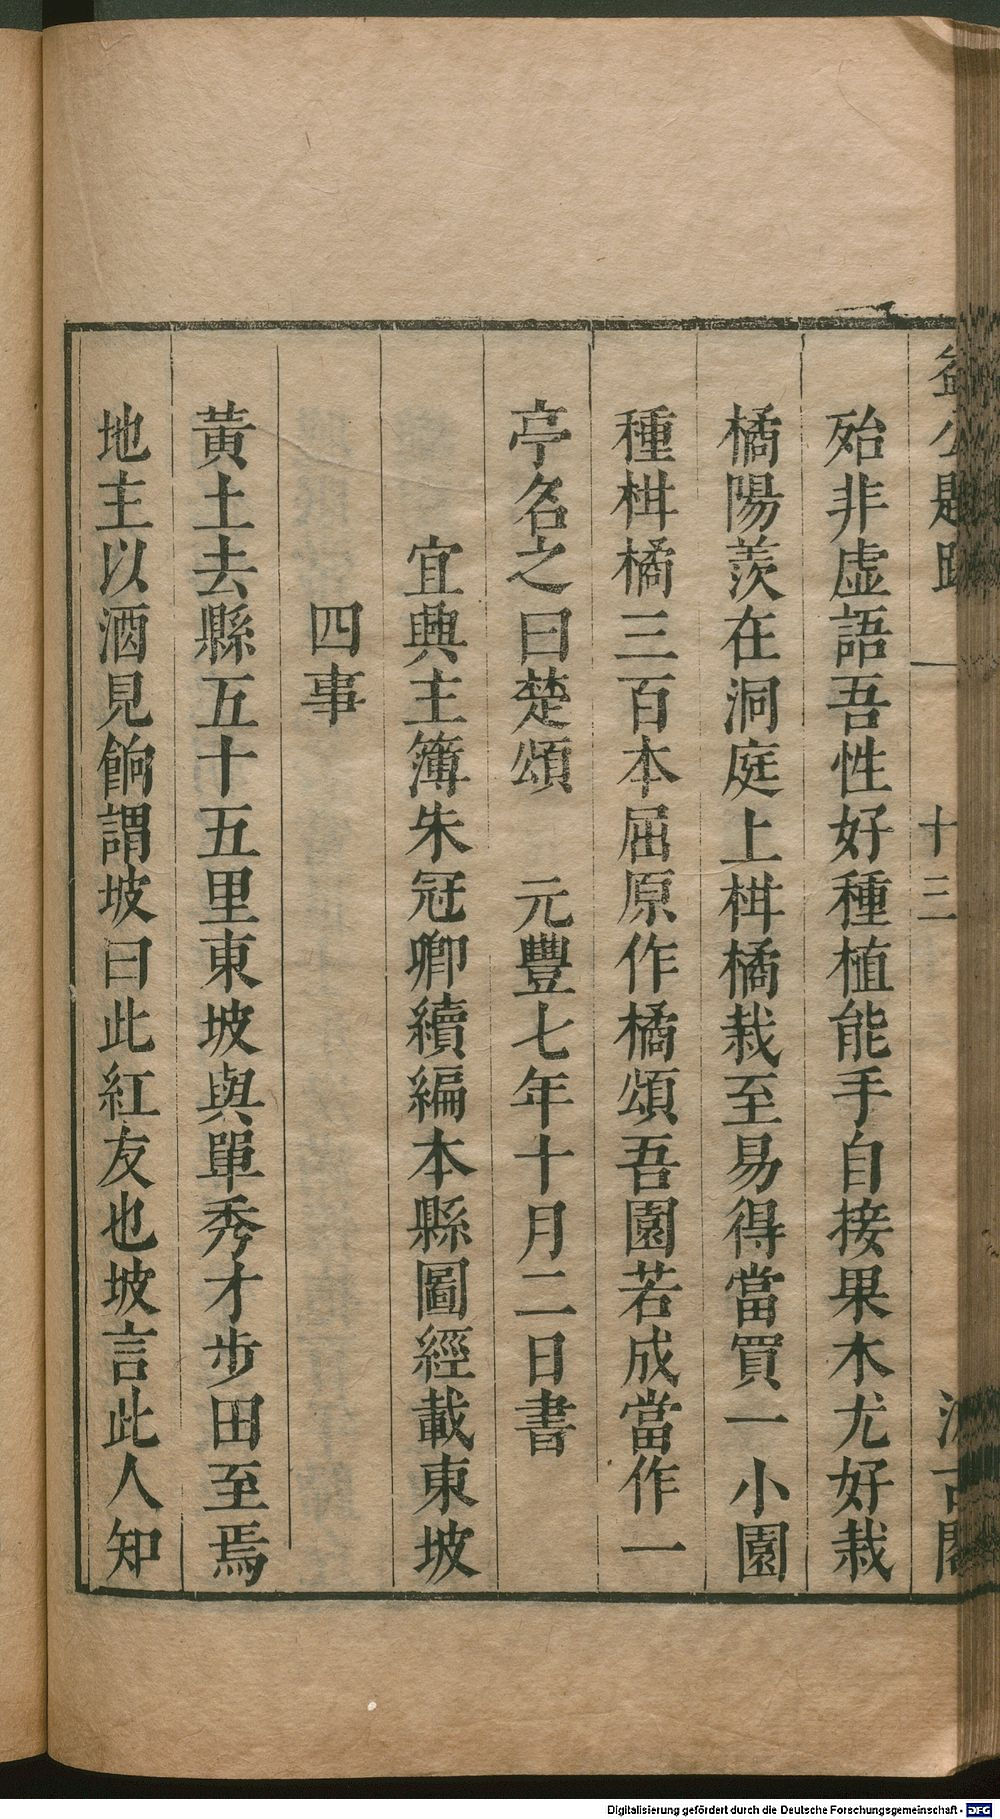 益公題跋 一 十三 汲古閣
殆非虛語吾性好種植能手自接果木尤好栽
橘陽羨在洞庭上柑橘栽至易得當買一小園
種柑橘三百本屈原作橘頌吾園若成當作一
亭名之曰楚頌 元豐七年十月二日書
宜興主簿朱冠卿續編本縣圖經載東坡
四事
黃土去縣五十五里東坡與單秀才步田至焉
地主以酒見餉謂坡曰此紅友也坡言此人知
Digitalisierung gefördert durch die Deutsche Forschungsgemeinschaft - DFG